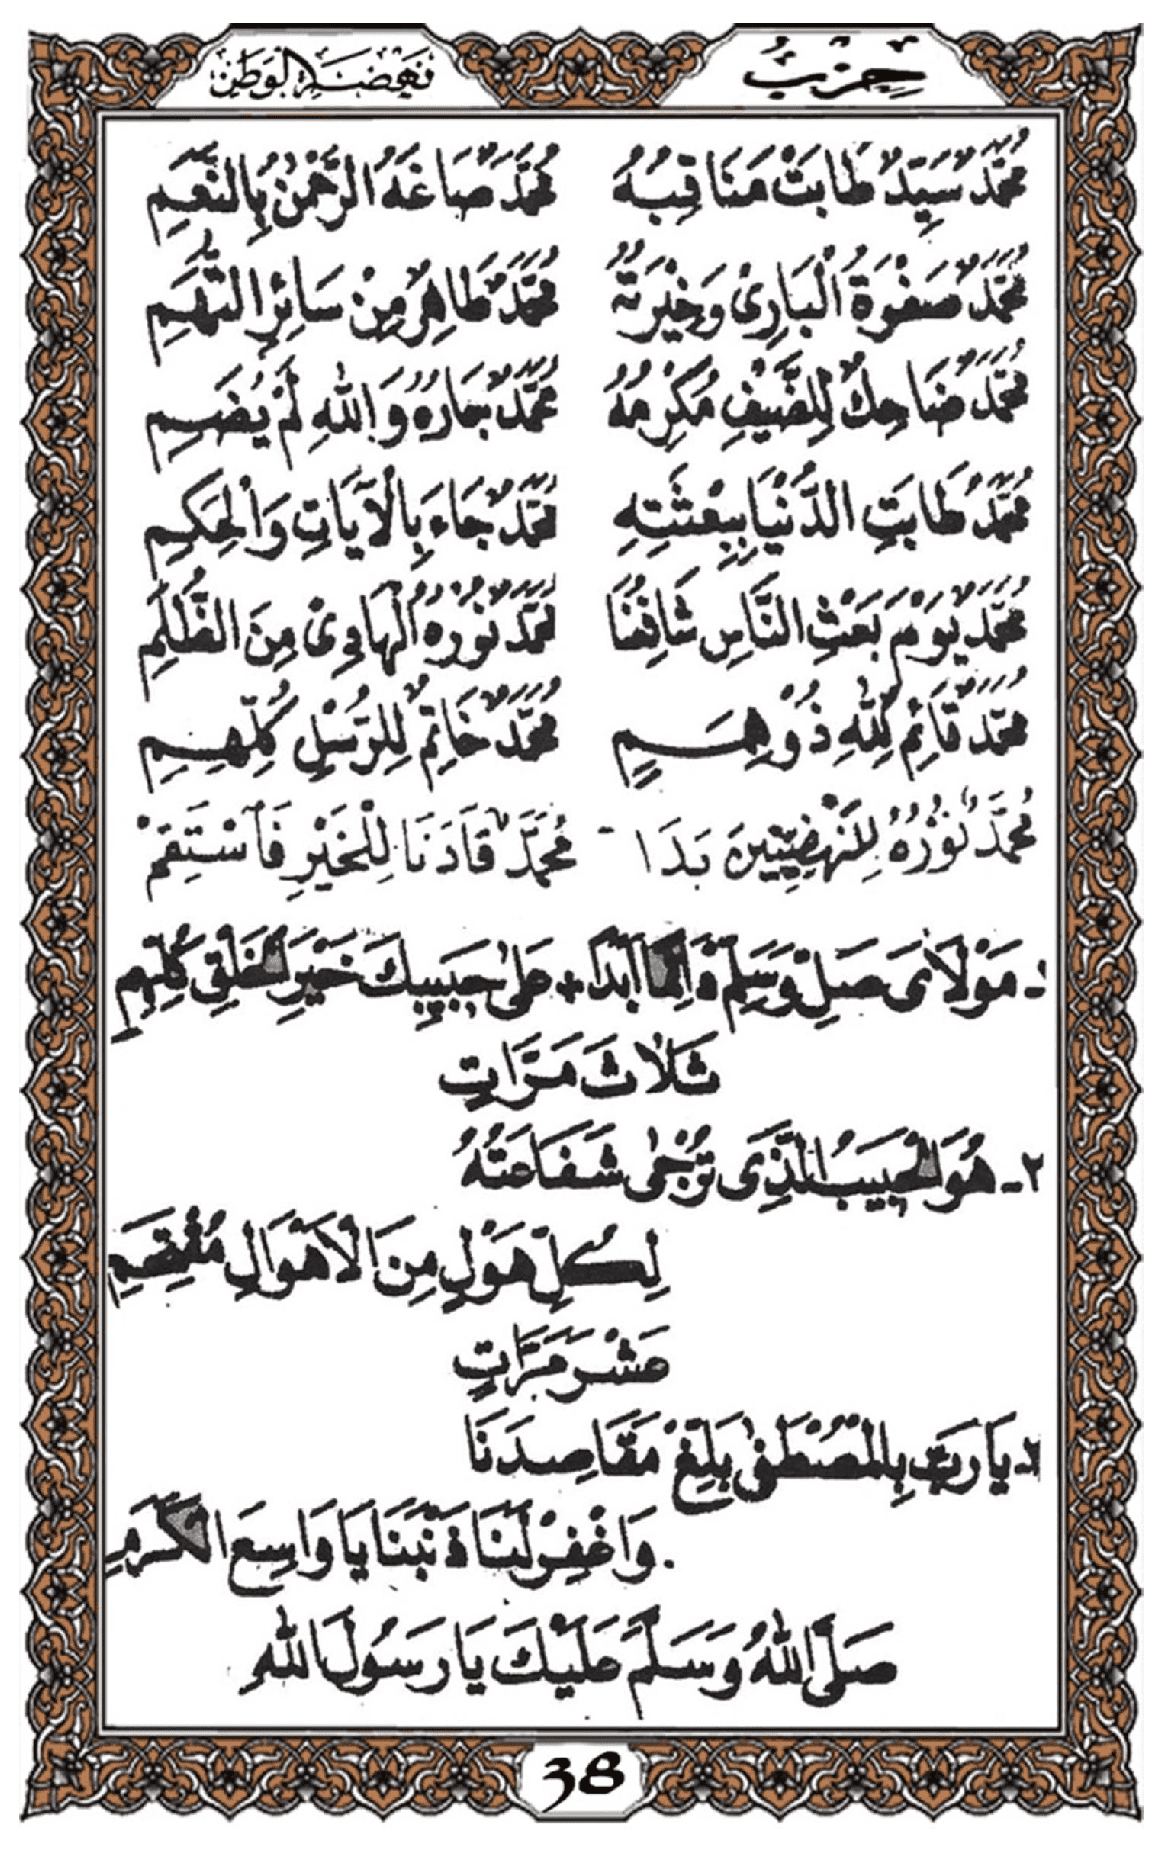 حِزْبُ نَهْضَةِ الْوَطَنْ
مُحَمَّدٌ سَيِّدٌ طَابَتْ مَنَاقِبُهُ مُحَمَّدٌ صَاغَهُ الرَّحْمٰنُ بِالنِّعَمِ
مُحَمَّدٌ صَفْوَةُ الْبَارِىْ وَخِيْرَتُهُ مُحَمَّدٌ طَاهِرٌ مِنْ سَائِرِ التُّهَمِ
مُحَمَّدٌ ضَاحِكٌ لِلضَّيْفِ مُكْرِمُهُ مُحَمَّدٌ جَارُهُ وَاللهِ لَمْ يُضَمِ
مُحَمَّدٌ طَابَتِ الدُّنْيَا بِبِعْثَتِهِ مُحَمَّدٌ جَاءَ بِالْآيَاتِ وَالْحِكَمِ
مُحَمَّدٌ يَوْمَ بَعْثِ النَّاسِ شَافِعُنَا مُحَمَّدٌ نُوْرُهُ الْهَادِىْ مِنَ الظُّلَمِ
مُحَمَّدٌ قَائِمٌ لِلّٰهِ ذُوْ هِمَمٍ مُحَمَّدٌ خَاتِمٌ لِلرُّسْلِ كُلِّهِمِ
مُحَمَّدٌ نُوْرُهُ لِلنَّهْضِيِّيْنَ بَدَا - مُحَمَّدٌ قَادَنَا لِلْخَيْرِ فَاسْتَقِمْ
١- مَوْلَاىَ صَلِّ وَسَلِّمْ دَائِمًا أَبَدًا + عَلٰى حَبِيبِكَ خَيْرِ الْخَلْقِ كُلِّهِمِ
ثَلَاثَ مَرَّاتٍ
٢- هُوَ الْحَبِيبُ الَّذِى تُرْجٰى شَفَاعَتُهُ
لِكُلِّ هَوْلٍ مِنَ الْاَهْوَالِ مُقْتَحِمِ
عَشْرَ مَرَّاتٍ
٣- يَا رَبِّ بِالْمُصْطَفٰى بَلِّغْ مَقَاصِدَنَا
وَاغْفِرْ لَنَا ذَنْبَنَا يَا وَاسِعَ الْكَرَمِ.
صَلَّى اللهُ وَسَلَّمَ عَلَيْكَ يَا رَسُولَ اللهِ
38